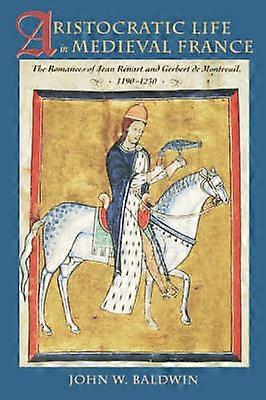 ARISTOCRATIC LIFE
in MEDIEVAL FRANCE
The Romances of Jean Renart and Gerbert de Montreuil,
1190–1230
JOHN W. BALDWIN